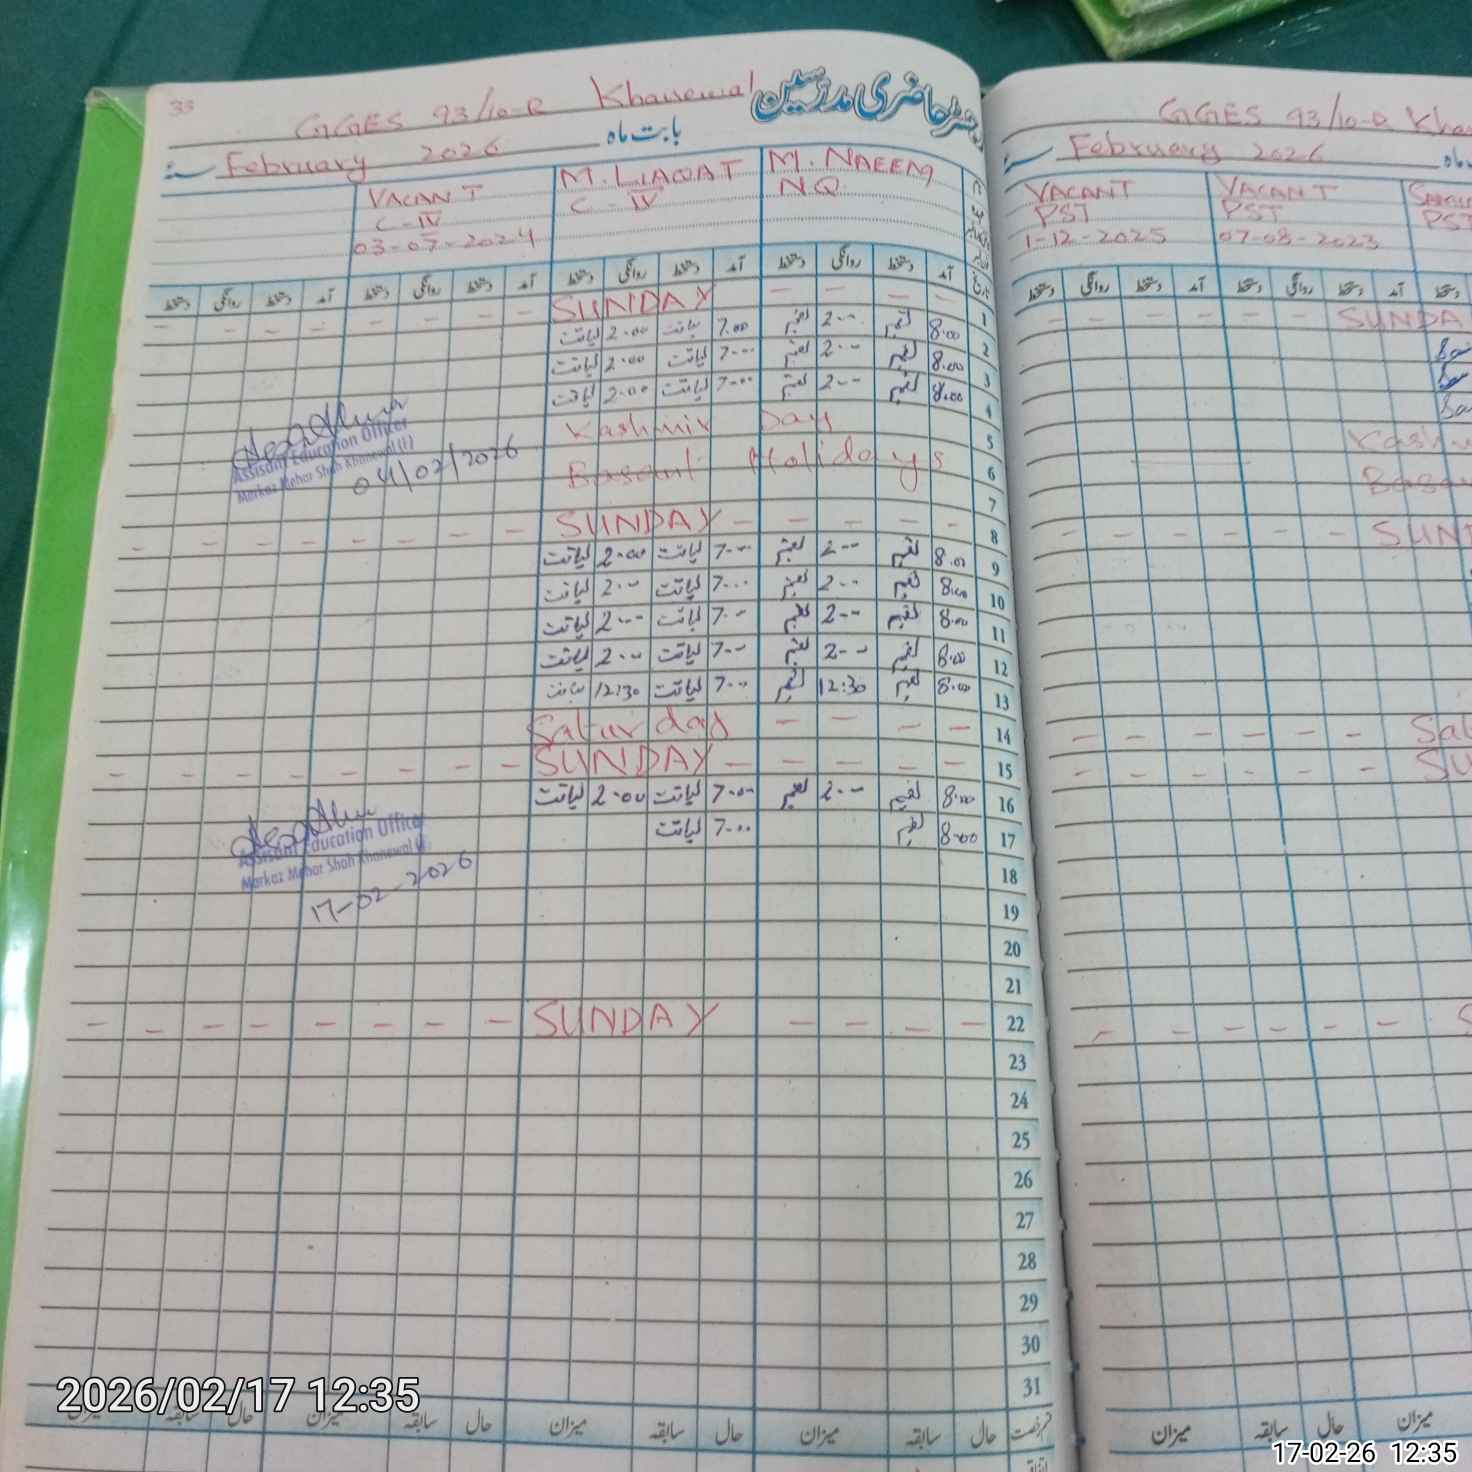 33
GGES 93/10-R Khanewal رجسٹر حاضری مدرسین
February 2026 بابت ماہ
VACANT C-IV 03-07-2024
M. LIAQAT C-IV
M. NAEEM NQ
دستخط روانگی دستخط آمد دستخط روانگی دستخط آمد دستخط روانگی دستخط آمد دستخط روانگی دستخط آمد تاریخ
SUNDAY 1
لیاقت 2.00 لیاقت 7.00 نعیم 2-- نعیم 8.00 2
لیاقت 2.00 لیاقت 7--- نعیم 2-- نعیم 8.00 3
لیاقت 2.00 لیاقت 7-00 نعیم 2-- نعیم 8.00 4
Kashmir Day 5
Basant Holidays 6
7
SUNDAY 8
لیاقت 2.00 لیاقت 7--- نعیم 2-- نعیم 8.00 9
لیاقت 2.-- لیاقت 7--- نعیم 2-- نعیم 8.00 10
لیاقت 2--- لیاقت 7.-- نعیم 2-- نعیم 8.00 11
لیاقت 2.-- لیاقت 7--- نعیم 2-- نعیم 8.00 12
لیاقت 12:30 لیاقت 7.-- نعیم 12:30 نعیم 8.00 13
Saturday 14
SUNDAY 15
لیاقت 2.00 لیاقت 7.00 نعیم 2.-- نعیم 8.00 16
لیاقت 7.-- نعیم 8-00 17
18
19
20
21
SUNDAY 22
23
24
25
26
27
28
29
30
31
میزان سابقہ حال میزان سابقہ حال میزان سابقہ حال میزان سابقہ حال
Assisant Education Officer
Markaz Mehar Shah Khanewal (F)
04/02/2026
Assisant Education Officer
Markaz Mehar Shah Khanewal
17-02-2026
GGES 93/10-R Kha
February 2026
VACANT PST 1-12-2025
VACANT PST 07-08-2023
PST
دستخط روانگی دستخط آمد دستخط روانگی دستخط آمد دستخط
SUNDA
Kashm
Basa
SUN
Sat
SU
S
میزان سابقہ حال میزان
2026/02/17 12:35
17-02-26 12:35